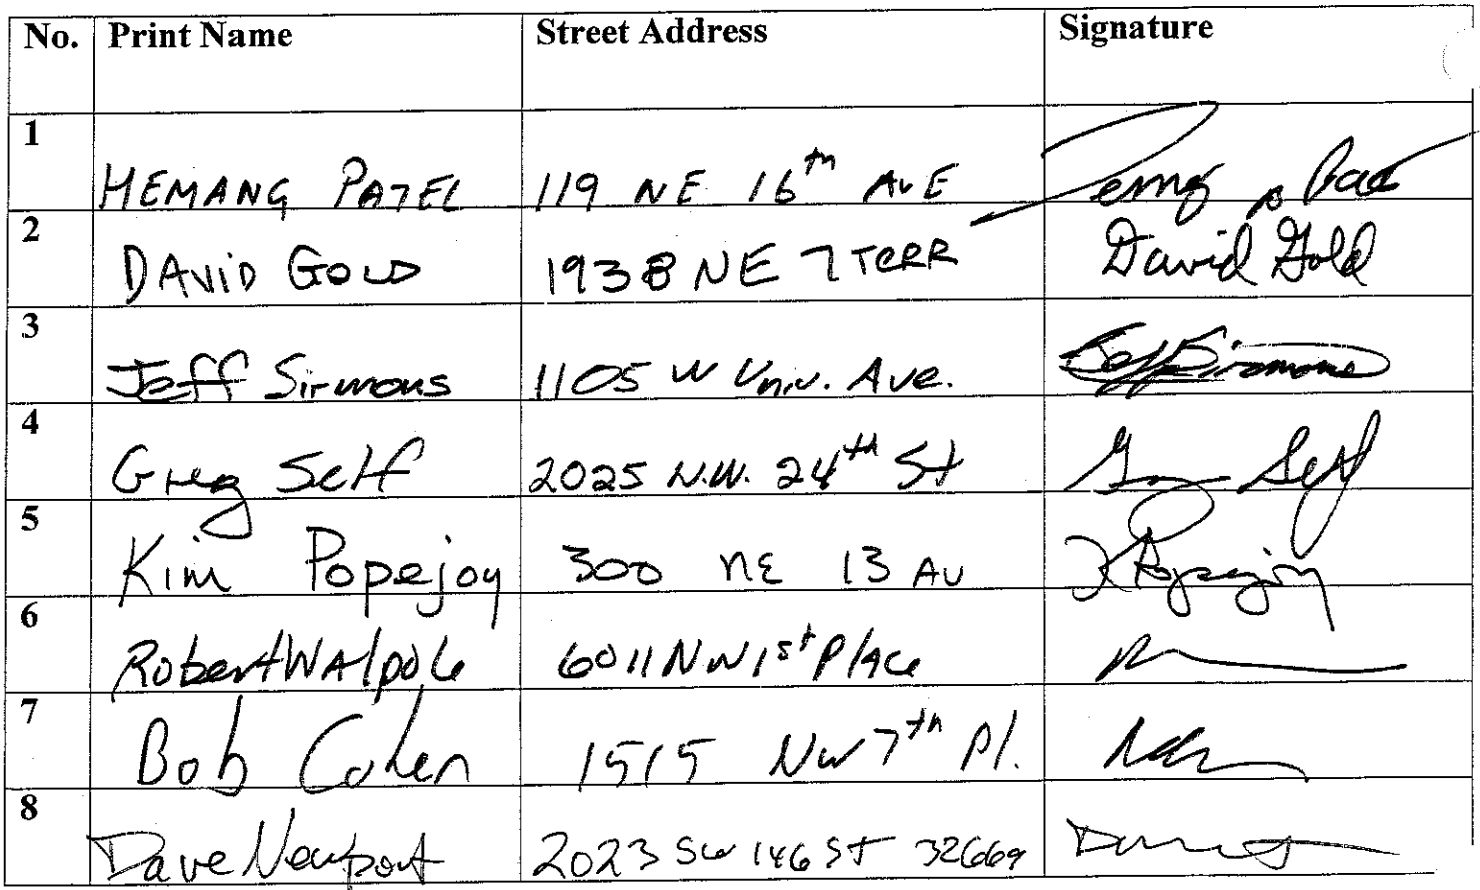 No. Print Name Street Address Signature
1 HEMANG PATEL 119 NE 16th AvE
2 DAViD GOLD 1938 NE 7 TERR David Gold
3 Jeff Sirmons 1105 W Univ. Ave. Jeff Sirmons
4 Greg Self 2025 N.W. 24th St Greg Self
5 Kim Popejoy 300 NE 13 AV K Popejoy
6 Robert WAlpole 6011 NW 1st PlAce
7 Bob Cohen 1515 NW 7th Pl.
8 Dave Newport 2023 SW 146 St 32669